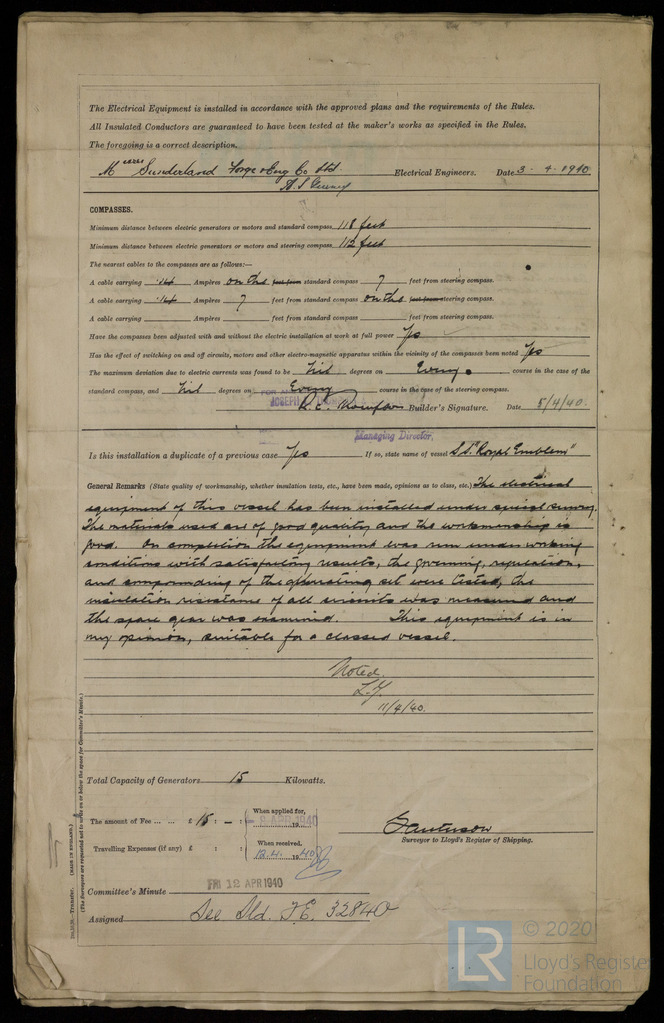 The Electrical Equipment is installed in accordance with the approved plans and the requirements of the Rules.
All Insulated Conductors are guaranteed to have been tested at the maker's works as specified in the Rules.
The foregoing is a correct description.
Messrs Sunderland Forge & Eng Co Ltd. Electrical Engineers. Date 3-4-1940
COMPASSES.
Minimum distance between electric generators or motors and standard compass 118 feet
Minimum distance between electric generators or motors and steering compass 112 feet
The nearest cables to the compasses are as follows:—
A cable carrying .14 Ampères on the feet from standard compass 7 feet from steering compass.
A cable carrying .14 Ampères 7 feet from standard compass on the feet from steering compass.
A cable carrying Ampères feet from standard compass feet from steering compass.
Have the compasses been adjusted with and without the electric installation at work at full power Yes
Has the effect of switching on and off circuits, motors and other electro-magnetic apparatus within the vicinity of the compasses been noted Yes
The maximum deviation due to electric currents was found to be Nil degrees on Every course in the case of the
standard compass, and Nil degrees on Every course in the case of the steering compass.
FOR
JOSEPH
Builder's Signature. Date 5/4/40.
Managing Director.
Is this installation a duplicate of a previous case Yes If so, state name of vessel S.S. "Royal Emblem"
General Remarks (State quality of workmanship, whether insulation tests, etc., have been made, opinions as to class, etc.) The electrical
equipment of this vessel has been installed under special survey.
The materials used are of good quality and the workmanship is
good. On completion the equipment was run under working
conditions with satisfactory results, the governing, regulation,
and compounding of the generating set were tested, the
insulation resistance of all circuits was measured and
the spare gear was examined. This equipment is in
my opinion, suitable for a classed vessel.
Noted.
11/4/40.
Total Capacity of Generators 15 Kilowatts.
The amount of Fee ... ... £ 15 : - : When applied for, 8 APR 1940 19
Travelling Expenses (if any) £ : : When received, 18.4. 1940
Surveyor to Lloyd's Register of Shipping.
Committee's Minute FRI 12 APR 1940
Assigned See Sld. F.E. 32840
Transfer. (MADE IN ENGLAND.)
(The Surveyors are requested not to write on or below the space for Committee's Minute.)
LR
© 2020
Lloyd's Register
Foundation